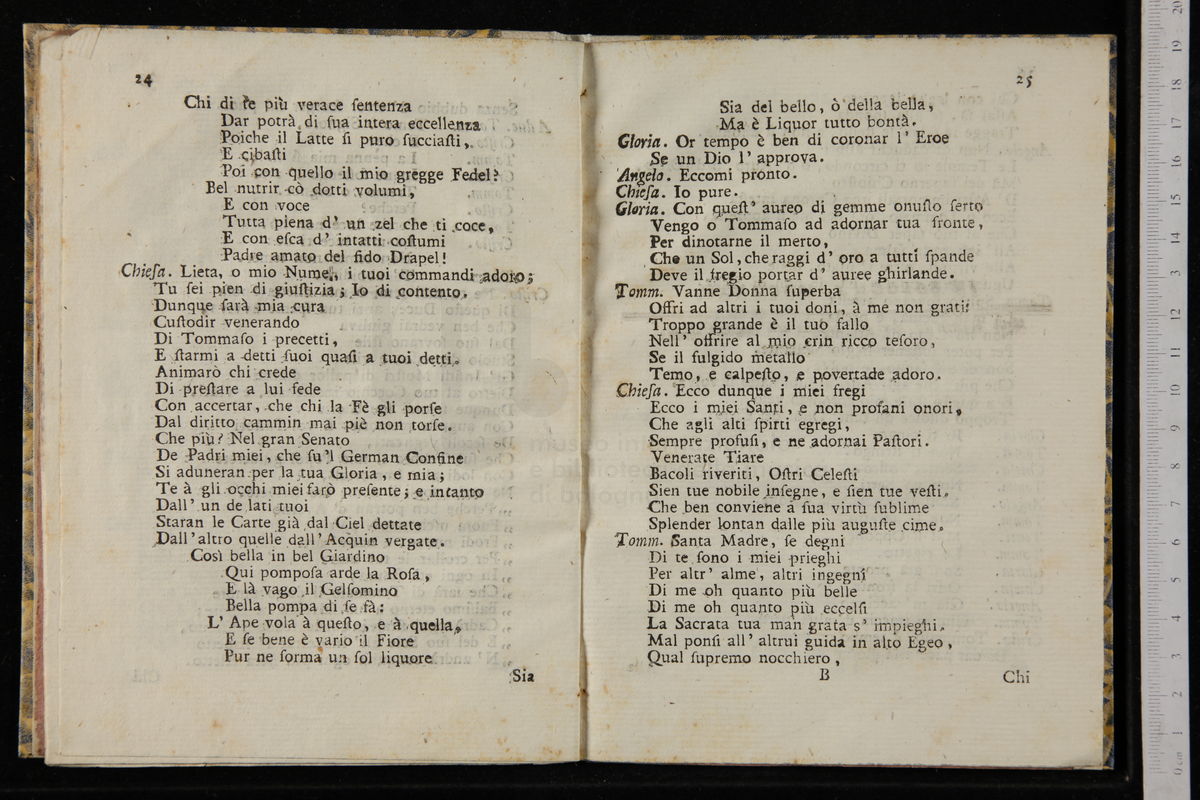 24
Chi di te più verace ſentenza
Dar potrà di ſua intera eccellenza
Poiche il Latte ſi puro ſucciaſti,
E cibaſti
Poi con quello il mio gregge Fedel?
Bel nutrir cò dotti volumi,
E con voce
Tutta piena d' un zel che ti coce,
E con eſca d' intatti coſtumi
Padre amato del fido Drapel!
Chieſa. Lieta, o mio Nume, i tuoi commandi adoro;
Tu ſei pien di giuſtizia; Io di contento.
Dunque ſarà mia cura
Cuſtodir venerando
Di Tommaſo i precetti,
E ſtarmi a detti ſuoi quaſi a tuoi detti.
Animarò chi crede
Di preſtare a lui fede
Con accertar, che chi la Fè gli porſe
Dal diritto cammin mai piè non torſe.
Che più? Nel gran Senato
De Padri miei, che ſu'l German Confine
Si aduneran per la tua Gloria, e mia;
Te à gli occhi miei farò preſente; e intanto
Dall' un de lati tuoi
Staran le Carte già dal Ciel dettate
Dall' altro quelle dall' Acquin vergate.
Così bella in bel Giardino
Qui pompoſa arde la Roſa,
E là vago il Gelſomino
Bella pompa di ſe fà:
L' Ape vola à queſto, e à quella,
E ſe bene è vario il Fiore
Pur ne forma un ſol liquore
Sia
25
Sia del bello, ò della bella,
Ma è Liquor tutto bontà.
Gloria. Or tempo è ben di coronar l' Eroe
Se un Dio l' approva.
Angelo. Eccomi pronto.
Chieſa. Io pure.
Gloria. Con queſt' aureo di gemme onuſto ſerto
Vengo o Tommaſo ad adornar tua fronte,
Per dinotarne il merto,
Che un Sol, che raggi d' oro a tutti ſpande
Deve il fregio portar d' auree ghirlande.
Tomm. Vanne Donna ſuperba
Offri ad altri i tuoi doni, à me non grati!
Troppo grande è il tuo fallo
Nell' offrire al mio crin ricco teſoro,
Se il fulgido metallo
Temo, e calpeſto, e povertade adoro.
Chieſa. Ecco dunque i miei fregi
Ecco i miei Santi, e non profani onori,
Che agli alti ſpirti egregi,
Sempre profuſi, e ne adornai Paſtori.
Venerate Tiare
Bacoli riveriti, Oſtri Celeſti
Sien tue nobile inſegne, e ſien tue veſti.
Che ben conviene à ſua virtù ſublime
Splender lontan dalle più auguſte cime.
Tomm. Santa Madre, ſe degni
Di te ſono i miei prieghi
Per altr' alme, altri ingegni
Di me oh quanto più belle
Di me oh quanto più eccelſi
La Sacrata tua man grata s' impieghi.
Mal ponſi all' altrui guida in alto Egeo,
Qual ſupremo nocchiero,
B
Chi